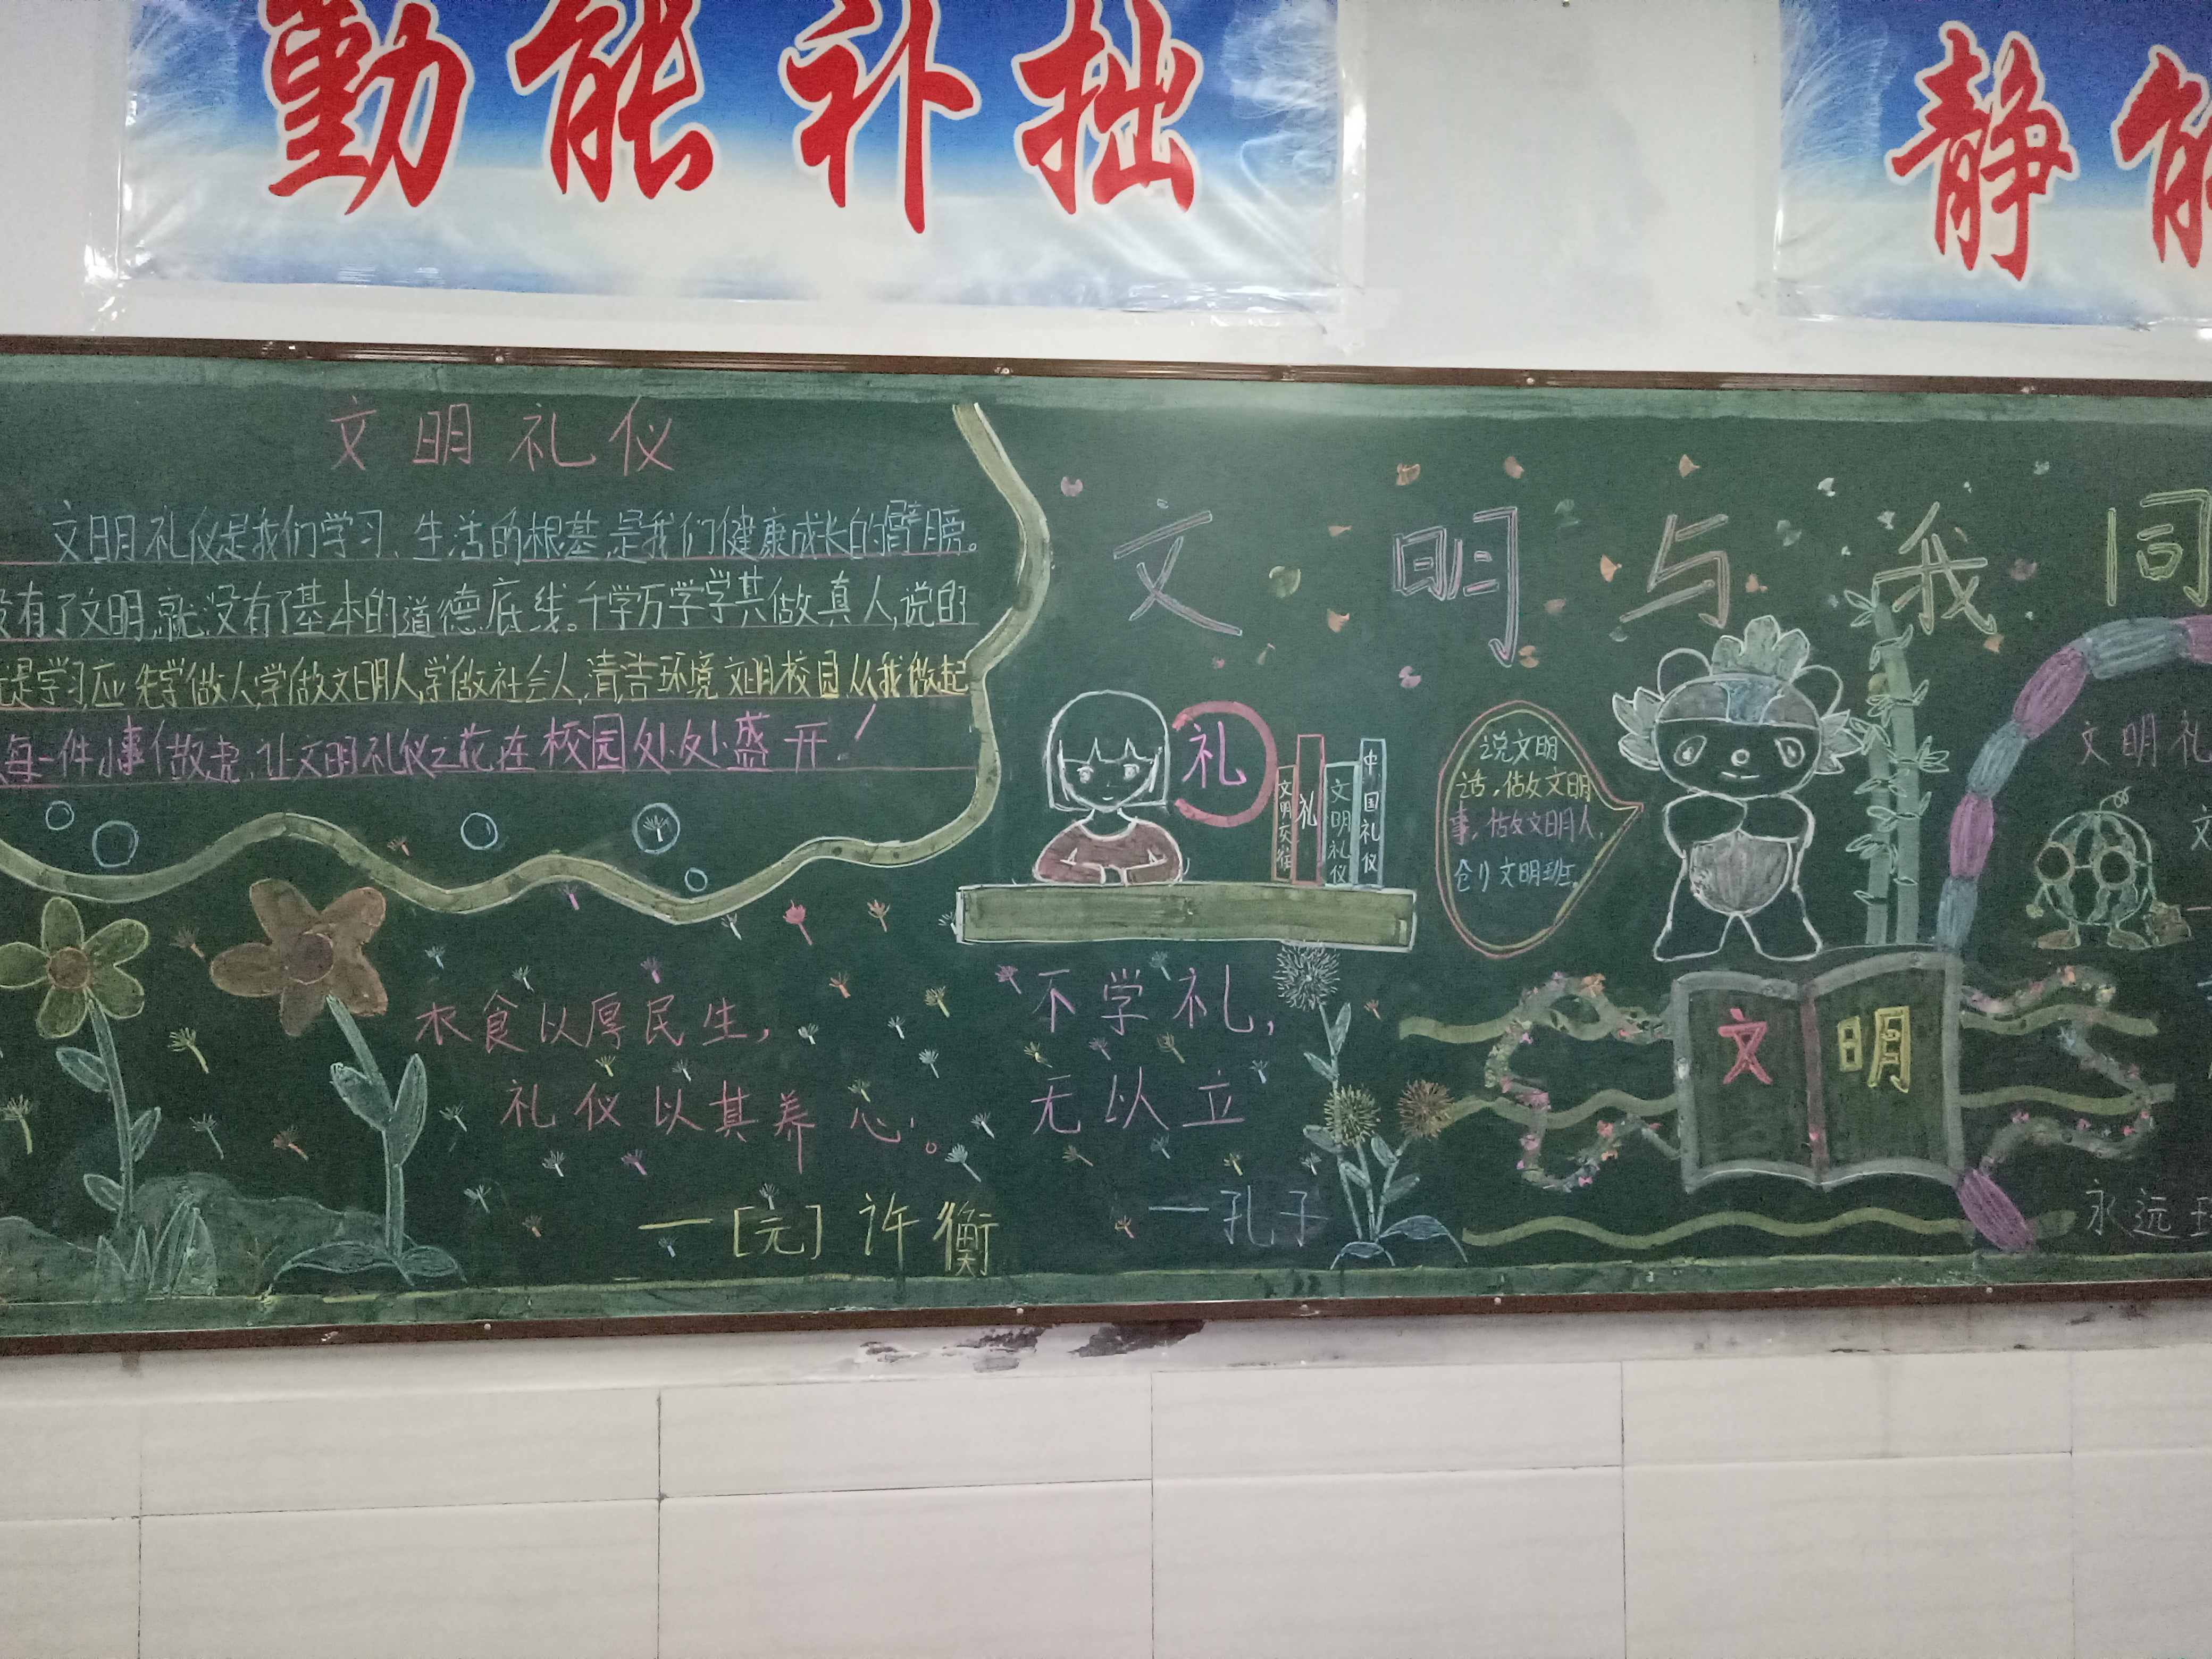 勤能补拙
静能
文明礼仪
文明礼仪是我们学习、生活的根基,是我们健康成长的臂膀。
没有了文明,就没有了基本的道德底线。千学万学学其做真人,说的
是学习应先学做人,学做文明人,学做社会人,清洁环境文明校园从我做起
每一件小事做起,让文明礼仪之花在校园处处盛开!
文明与我同
礼
文明交往
礼
文明礼仪
中国礼仪
说文明
话,做文明
事,做文明人,
创文明班。
文明礼
文
衣食以厚民生,
礼仪以其养心。
—[元]许衡
不学礼,
无以立
—孔子
文明
永远